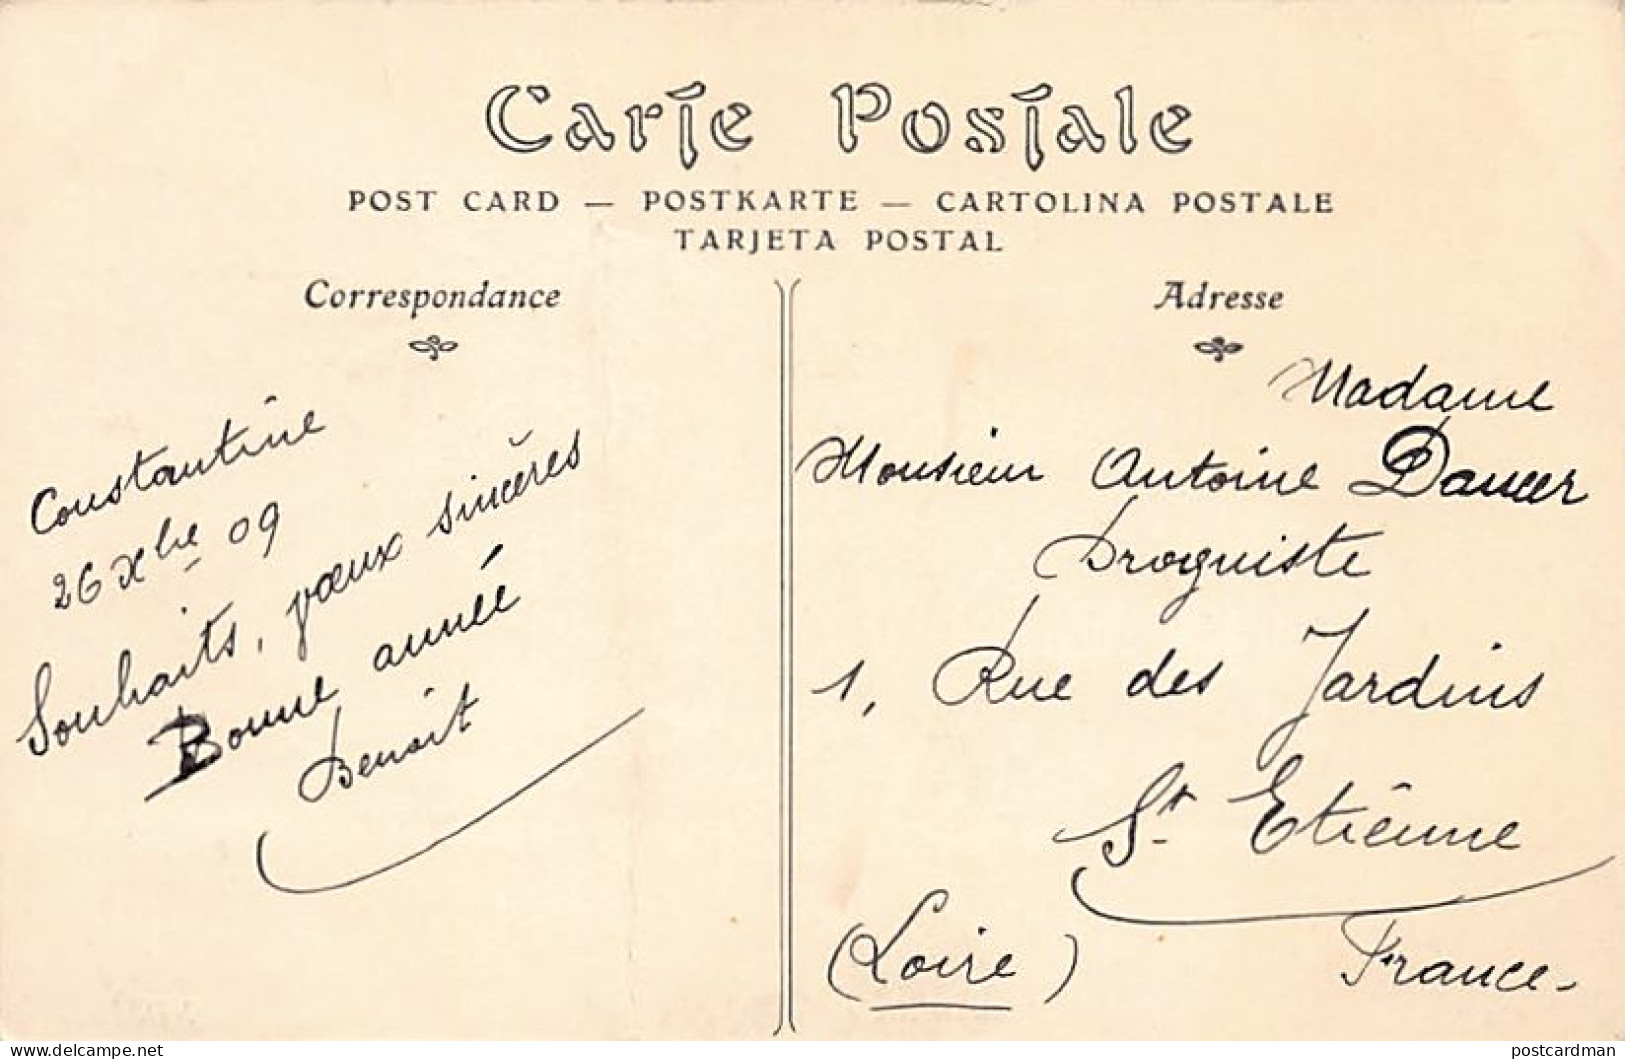 Carte Postale
POST CARD — POSTKARTE — CARTOLINA POSTALE
TARJETA POSTAL
Correspondance
Constantine
26 Xbre 09
Souhaits, vœux sincères
Bonne année
Benoit
Adresse
Madame
Monsieur Antoine
Droguiste
1, Rue des Jardins
St Etienne
(Loire)
France-
delcampe.net
postcardman